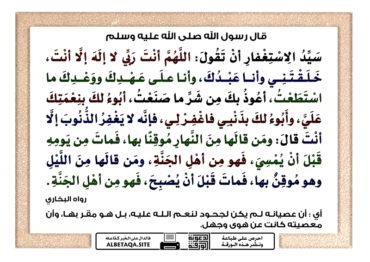 قال رسول الله صلى الله عليه وسلم
سَيِّدُ الِاسْتِغْفارِ أنْ تَقُولَ: اللَّهُمَّ أنْتَ رَبِّي لا إلَهَ إلَّا أنْتَ،
خَلَقْتَنِي وأنا عَبْدُكَ، وأنا علَى عَهْدِكَ ووَعْدِكَ ما
اسْتَطَعْتُ، أعُوذُ بكَ مِن شَرِّ ما صَنَعْتُ، أبُوءُ لكَ بنِعْمَتِكَ
عَلَيَّ، وأَبُوءُ لكَ بذَنْبِي فاغْفِرْ لِي، فإنَّه لا يَغْفِرُ الذُّنُوبَ إلَّا
أنْتَ قالَ: ومَن قالَها مِنَ النَّهارِ مُوقِنًا بها، فَماتَ مِن يَومِهِ
قَبْلَ أنْ يُمْسِيَ، فَهو مِن أهْلِ الجَنَّةِ، ومَن قالَها مِنَ اللَّيْلِ
وهو مُوقِنٌ بها، فَماتَ قَبْلَ أنْ يُصْبِحَ، فَهو مِن أهْلِ الجَنَّةِ.
رواه البخاري
أي : أن عصيانه لم يكن لجحود لنعم الله عليه، بل هو مقر بها، وأن
معصيته كانت عن هوى وجهل.
احرص على طباعة
ونشر هذه الورقة
فالدال على الخير كفاعله
ALBETAQA.SITE